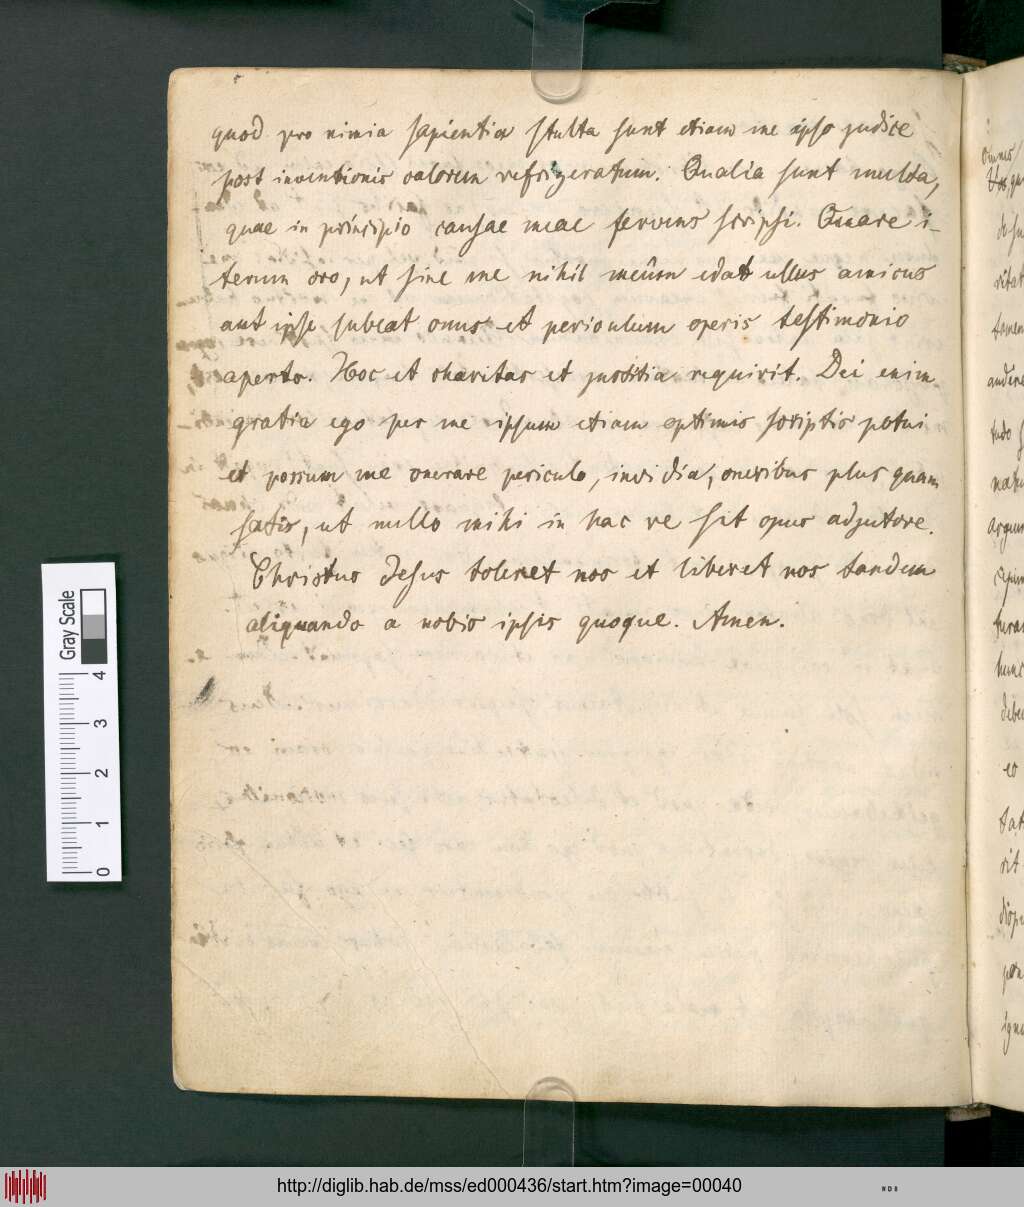 quod pro nimia sapientia stulta sunt etiam me ipso judice
post inventionis calorem refrigeratum. Qualia sunt multa,
quae in principio causae meae fervens scripsi. Quare i-
terum oro, ut sine me nihil meûm edat ullus amicus
aut ipse subeat onus et periculum operis testimonio
aperto. Hoc et charitas et justitia requirit. Dei enim
gratia ego per me ipsum etiam optimis scriptis potui
et possum me onerare periculo, invidia, oneribus plus quam
satis, ut nullo mihi in hac re sit opus adjutore.
Christus Jesus toleret nos et liberet nos tandem
aliquando a nobis ipsis quoque. Amen.
Omnes
tamen
Gray Scale
4
3
2
1
0
http://diglib.hab.de/mss/ed000436/start.htm?image=00040